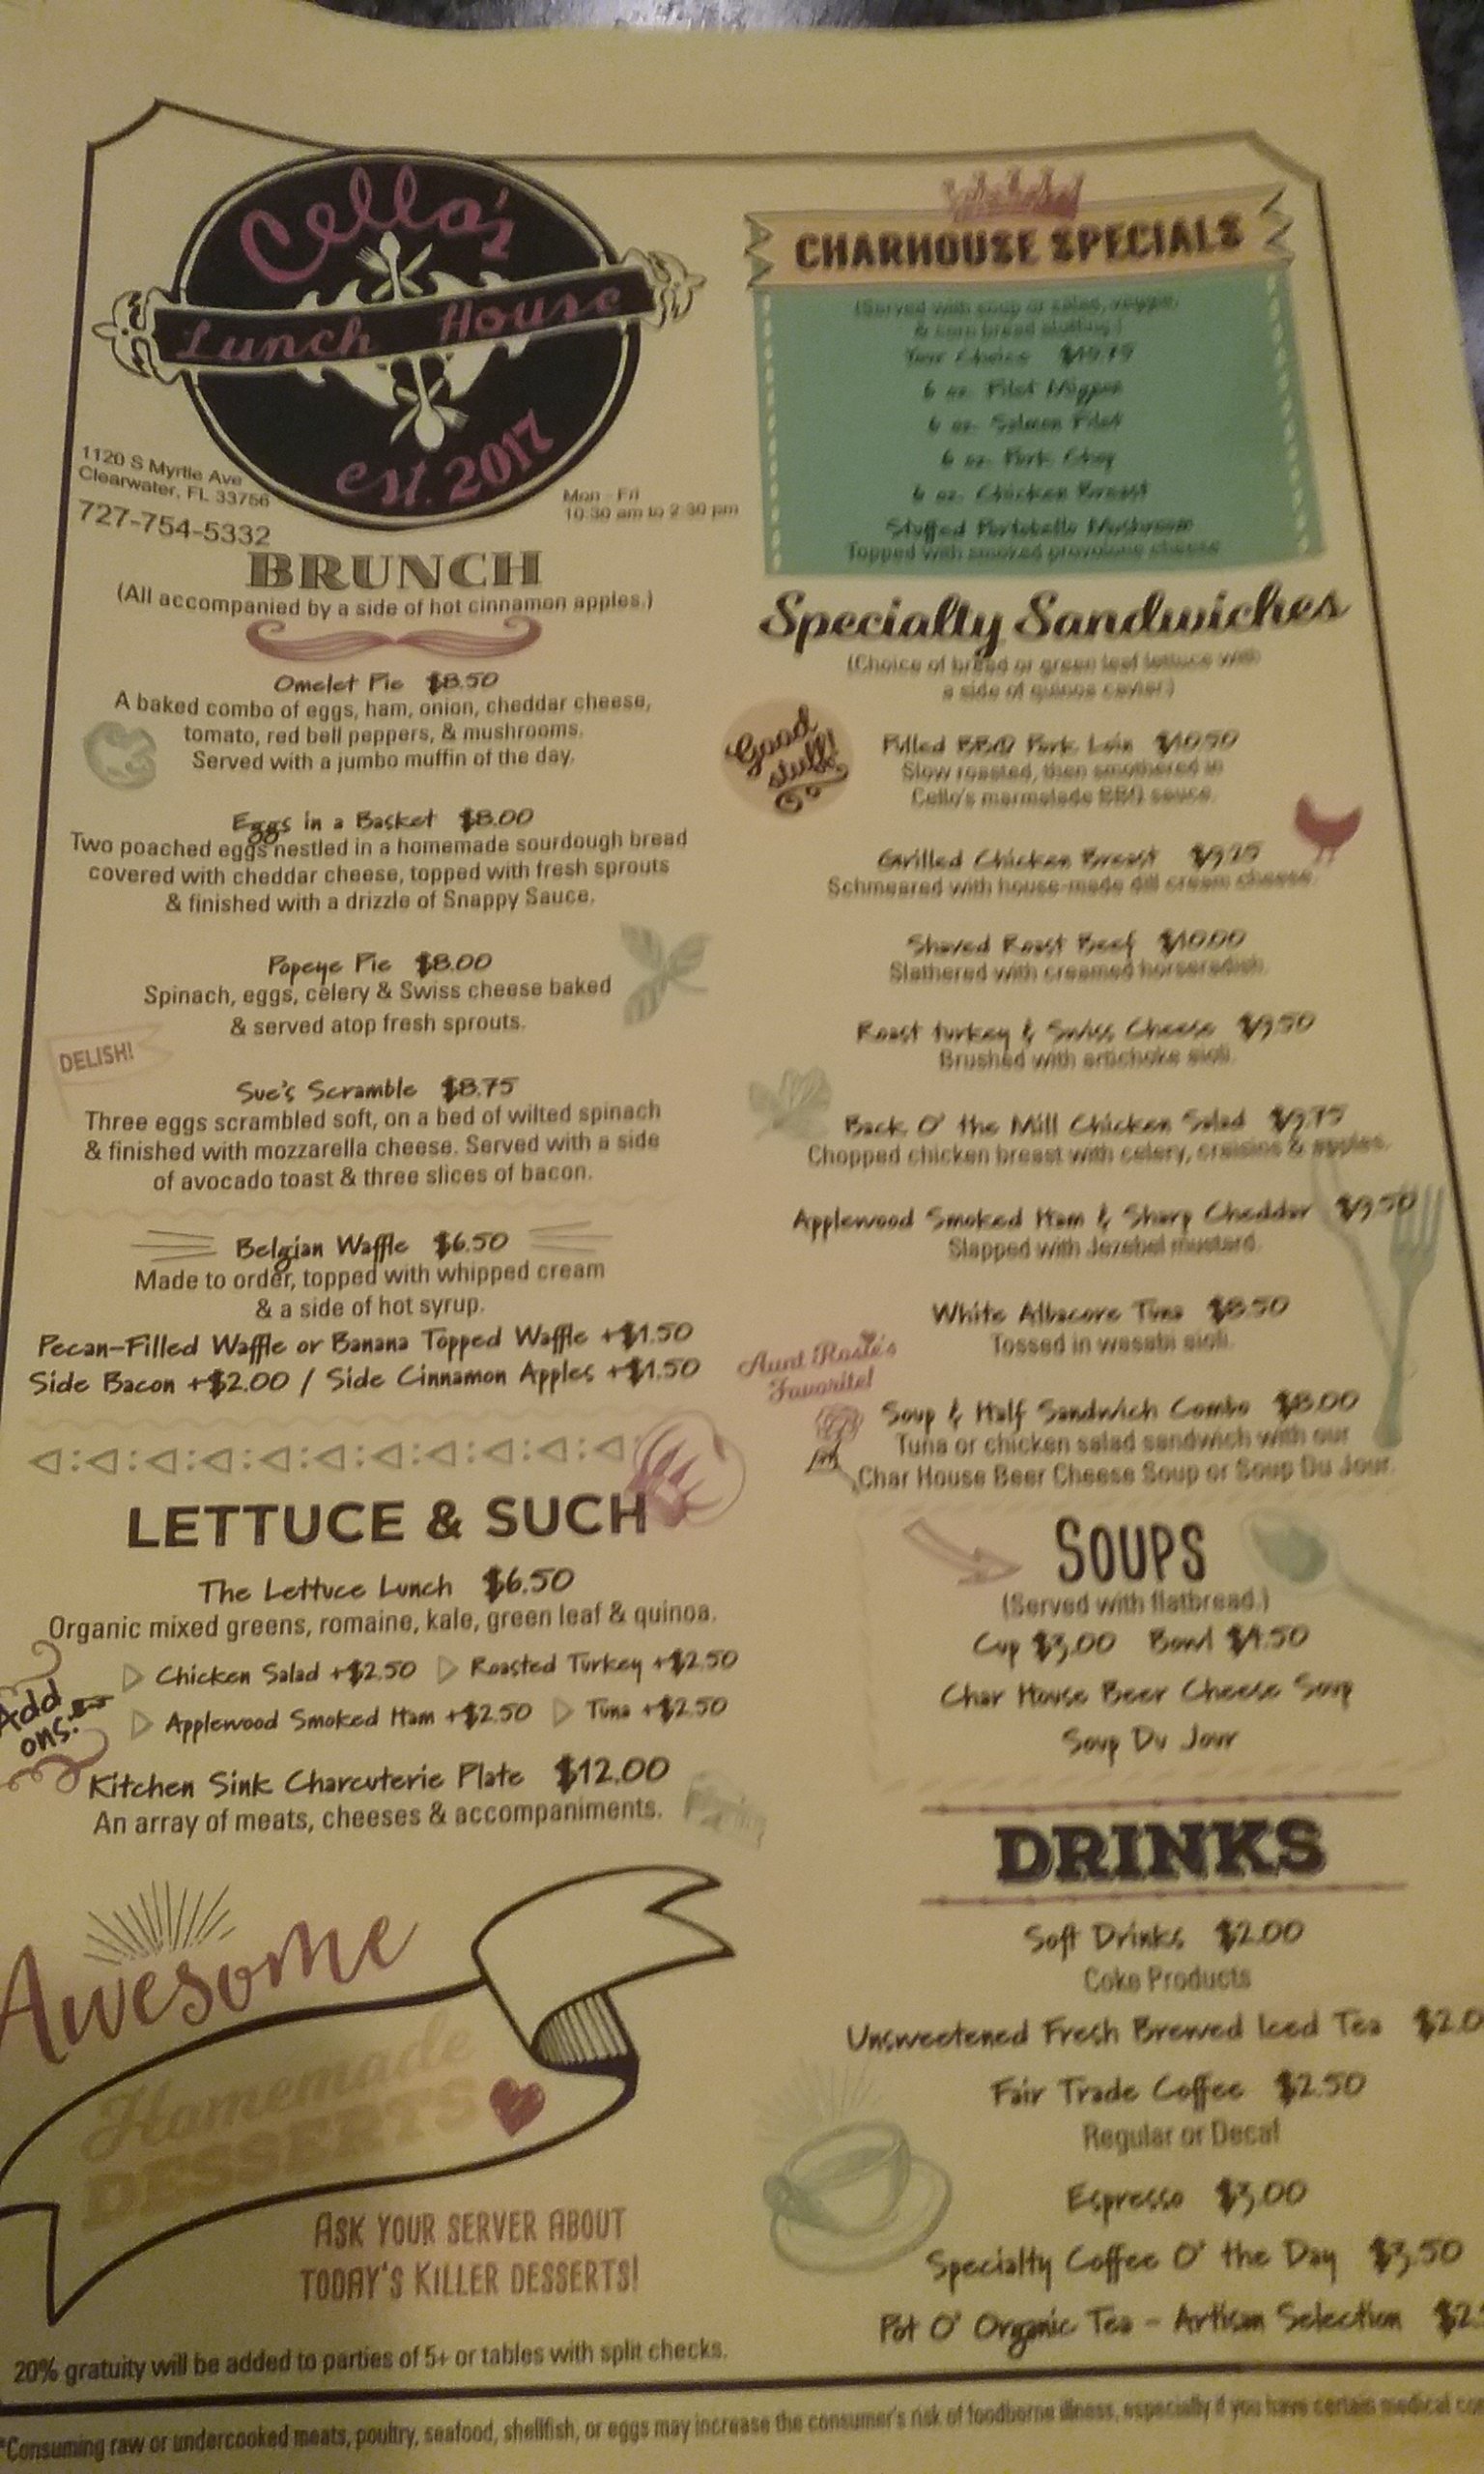 Cello's
Lunch House
est. 2017
1120 S Myrtle Ave
Clearwater, FL 33756
727-754-5332
Mon - Fri
10:30 am to 2:30 pm
BRUNCH
(All accompanied by a side of hot cinnamon apples.)
Omelet Pie $8.50
A baked combo of eggs, ham, onion, cheddar cheese,
tomato, red bell peppers, & mushrooms.
Served with a jumbo muffin of the day.
Eggs in a Basket $8.00
Two poached eggs nestled in a homemade sourdough bread
covered with cheddar cheese, topped with fresh sprouts
& finished with a drizzle of Snappy Sauce.
Popeye Pie $8.00
Spinach, eggs, celery & Swiss cheese baked
& served atop fresh sprouts.
DELISH!
Sue's Scramble $8.75
Three eggs scrambled soft, on a bed of wilted spinach
& finished with mozzarella cheese. Served with a side
of avocado toast & three slices of bacon.
Belgian Waffle $6.50
Made to order, topped with whipped cream
& a side of hot syrup.
Pecan-Filled Waffle or Banana Topped Waffle +$1.50
Side Bacon +$2.00 / Side Cinnamon Apples +$1.50
LETTUCE & SUCH
The Lettuce Lunch $6.50
Organic mixed greens, romaine, kale, green leaf & quinoa.
Add ons:
Chicken Salad +$2.50 Roasted Turkey +$2.50
Applewood Smoked Ham +$2.50 Tuna +$2.50
Kitchen Sink Charcuterie Plate $12.00
An array of meats, cheeses & accompaniments.
Awesome
Homemade
DESSERTS
ASK YOUR SERVER ABOUT
TODAY'S KILLER DESSERTS!
20% gratuity will be added to parties of 5+ or tables with split checks.
CHARHOUSE SPECIALS
(Served with soup or salad, veggie,
& corn bread stuffing.)
Your Choice
6 oz. Filet Mignon
6 oz. Salmon Filet
6 oz. Pork Chop
6 oz. Chicken Breast
Stuffed Portobello Mushroom
Topped with smoked provolone cheese
Specialty Sandwiches
(Choice of bread or green leaf lettuce with
a side of quinoa cavier.)
Good stuff!
Pulled BBQ Pork Loin $10.50
Slow roasted, then smothered in
Cello's marmalade BBQ sauce.
Grilled Chicken Breast $9.25
Schmeared with house-made dill cream cheese.
Shaved Roast Beef $10.00
Slathered with creamed horseradish.
Roast turkey & Swiss Cheese $9.50
Brushed with artichoke aioli.
Back O' the Mill Chicken Salad $9.75
Chopped chicken breast with celery, craisins & apples.
Applewood Smoked Ham & Sharp Cheddar $9.50
Slapped with Jezebel mustard.
White Albacore Tuna $8.50
Tossed in wasabi aioli.
Aunt Rosie's
Favorite!
Soup & Half Sandwich Combo $8.00
Tuna or chicken salad sandwich with our
Char House Beer Cheese Soup or Soup Du Jour.
SOUPS
(Served with flatbread.)
Cup $3.00 Bowl $4.50
Char House Beer Cheese Soup
Soup Du Jour
DRINKS
Soft Drinks $2.00
Coke Products
Unsweetened Fresh Brewed Iced Tea $2.0
Fair Trade Coffee $2.50
Regular or Decaf
Espresso $3.00
Specialty Coffee O' the Day $3.50
Pot O' Organic Tea - Artisan Selection $2.
*Consuming raw or undercooked meats, poultry, seafood, shellfish, or eggs may increase the consumer's risk of foodborne illness, especially if you have certain medical